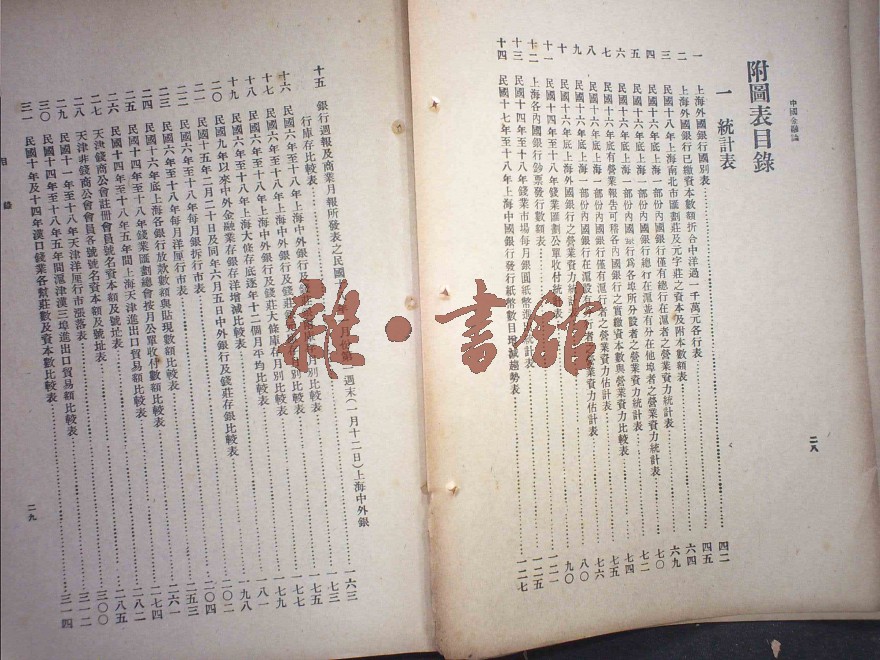 中國金融論
附圖表目錄
一 統計表
一 上海外國銀行國別表 四二
二 上海外國銀行已繳資本數額折合中洋過一千萬元各行表 四五
三 民國十八年上海南北市匯劃莊及元字莊之資本及附本數額表 六四
四 民國十六年底上海一部份內國銀行僅有總行在滬者之營業資力統計表 六九
五 民國十六年底上海一部份內國銀行總行在滬並有分在他埠者之營業資力統計表 七〇
六 民國十六年底上海一部份內國銀行為各埠所分設者之營業資力統計表 七二
七 民國十六年底有營業報告可稽各內國銀行之實繳資本數與營業資力比較表 七四
八 民國十六年底上海一部份內國銀行僅有滬行者之營業資力估計表 七五
九 民國十六年底上海一部份內國銀行在滬設 行者 營業資力估計表 七六
十 民國十六年底上海外國銀行之營業資力統計 八〇
十一 民國十八年至十八年錢業匯劃公單收付統計表 九〇
十二 上海各內國銀行鈔票發行數額表 一二五
十三 民國十六年至十八年錢業市場每月銀圓紙幣進 統計表 一二五
十四 民國十七年至十八年上海中國銀行發行紙幣數目增減趨勢表 一二七
二八
十五 銀行週報及商業月報所發表之民國 年 月份第 週末(一月十二日)上海中外銀
行庫存比較表 一六三
十六 民國六年至十八年上海中外銀行及錢莊 月別比較表 一七三
十七 民國六年至十八年上海中外銀行及錢莊 存月別比較表 一七五
十八 民國六年至十八年上海中外銀行及錢莊大條庫存月別比較表 一七七
十九 民國六年至十八年上海大條存底逐年十二個月平均比較表 一七九
二〇 民國九年以來中外金融業存銀存洋增減比較表 一八一
二一 民國十五年二月二十日及同年六月五日中外銀行及錢莊存銀比較表 一九八
二二 民國六年至十八年每月銀拆行市表 二〇二
二三 民國六年至十八年每月洋厘行市表 二〇四
二四 民國十六年底上海各銀行放款數額與貼現數額比較表 二五三
二五 民國十四年至十八年錢業匯劃總會按月公單收付數額比較表 二六一
二六 民國十四年至十八年五年間上海天津進出口貿易額比較表 二七四
二七 天津錢商公會註冊會員號名資本額及號址表 二八二
二八 天津非錢商公會會員各號號名資本額及號址表 二八五
二九 民國十一年至十八年天津洋厘行市漲落表 三〇〇
三〇 民國十四年至十八年五年間滬津漢三埠進出口貿易額比較表 三一二
三一 民國十年及十四年漢口錢業各幫莊數及資本數比較表 三一四
目 錄
二九
雜·書館